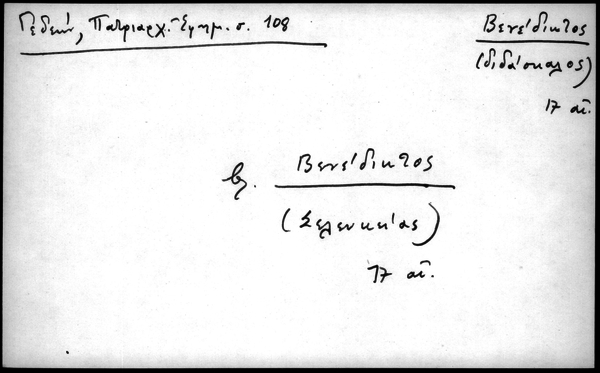 Γεδεών, Πατριαρχ. Εφημ. σ. 108
Βενέδικτος
(διδάσκαλος)
17 αἰ.
βλ. Βενέδικτος
(Σελευκείας)
17 αἰ.